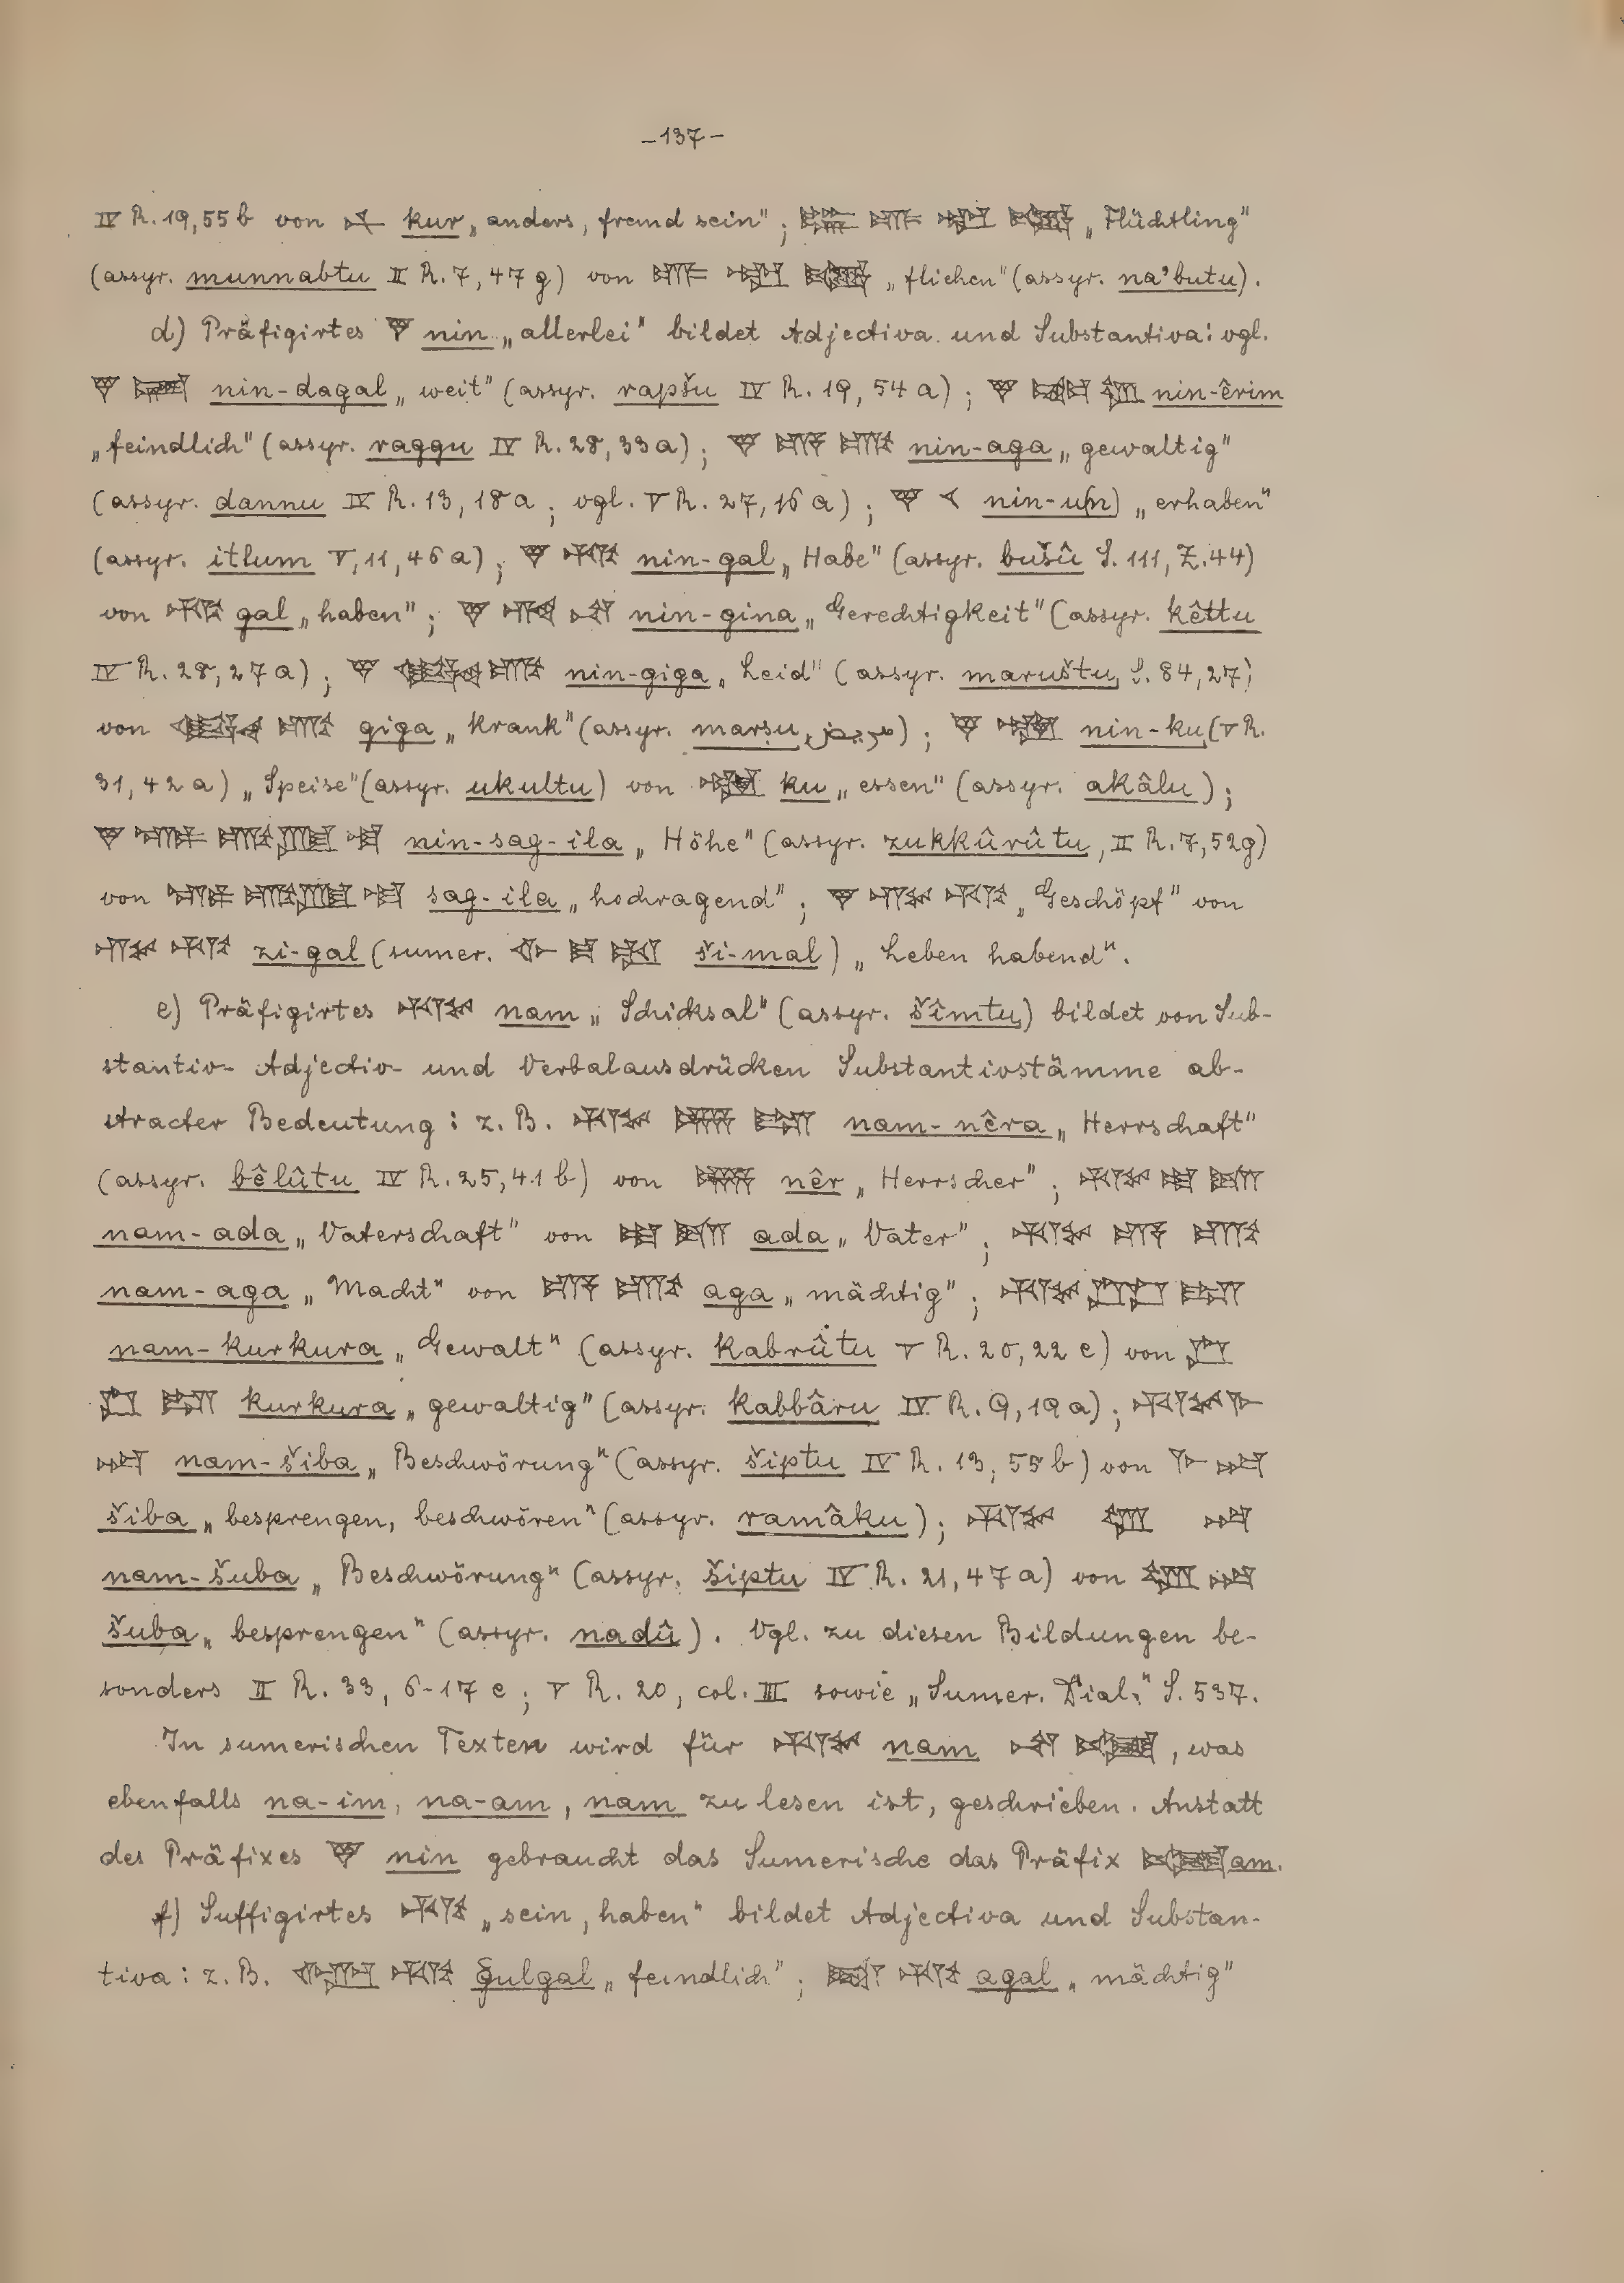 -137-
IV R. 19,55 b von 𒉽 kur „anders, fremd sein"; „Flüchtling"
(assyr. munnabtu II R. 7, 47 g) von „fliehen" (assyr. na'butu).
d) Präfigirtes 𒃻 nin „allerlei" bildet Adjectiva und Substantiva: vgl.
𒃻 𒂼 nin-dagal „weit" (assyr. rapšu IV R. 19, 54 a); 𒃻 nin-êrim
„feindlich" (assyr. raggu IV R. 28, 33 a); 𒃻 nin-aga „gewaltig"
(assyr. dannu IV R. 13, 18 a; vgl. V R. 27, 16 a); 𒃻 𒌋 nin-u(n) „erhaben"
(assyr. itlum V, 11, 46 a); 𒃻 𒅅 nin-gal „Habe" (assyr. bušû S. 111, Z. 44)
von 𒅅 gal „haben"; 𒃻 𒄀 𒈾 nin-gina „Gerechtigkeit" (assyr. kêttu
IV R. 28, 27 a); 𒃻 𒈪 𒂵 nin-giga „Leid" (assyr. maruštu, S. 84, 27)
von 𒂵 giga „krank" (assyr. marṣu, مرض); 𒃻 𒅥 nin-ku (V R.
31, 42 a) „Speise" (assyr. ukultu) von 𒅥 ku „essen" (assyr. akâlu);
𒃻 𒊕 𒅍 𒆷 nin-sag-ila „Höhe" (assyr. zukkûrûtu, II R. 7, 52 g)
von 𒊕 𒅍 𒆷 sag-ila „hochragend"; 𒃻 𒍣 𒅅 „Geschöpf" von
𒍣 𒅅 zi-gal (sumer. ši-mal) „Leben habend".
e) Präfigirtes 𒉆 nam „Schicksal" (assyr. šîmtu) bildet von Sub-
stantiv- Adjectiv- und Verbalausdrücken Substantivstämme ab-
stracter Bedeutung: z. B. 𒉆 𒊏 nam-nêra „Herrschaft"
(assyr. bêlûtu IV R. 25, 41 b) von nêr „Herrscher"; 𒉆 𒀜 𒁕
nam-ada „Vaterschaft" von 𒀜 𒁕 ada „Vater"; 𒉆 𒂵
nam-aga „Macht" von 𒂵 aga „mächtig"; 𒉆 𒊏
nam-kurkura „Gewalt" (assyr. kabrûtu V R. 20, 22 e) von
𒊏 kurkura „gewaltig" (assyr. kabbâru IV R. 9, 19 a); 𒉆 𒈨
𒁀 nam-šiba „Beschwörung" (assyr. šiptu IV R. 13, 55 b) von 𒈨 𒁀
šiba „besprengen, beschwören" (assyr. ramâku); 𒉆 𒊒 𒁀
nam-šuba „Beschwörung" (assyr. šiptu IV R. 21, 47 a) von 𒊒 𒁀
šuba „besprengen" (assyr. nadû). Vgl. zu diesen Bildungen be-
sonders II R. 33, 6-17 e; V R. 20, col. III sowie „Sumer. Dial." S. 537.
In sumerischen Texten wird für 𒉆 nam 𒈾 𒉘, was
ebenfalls na-im, na-am, nam zu lesen ist, geschrieben. Anstatt
des Präfixes 𒃻 nin gebraucht das Sumerische das Präfix 𒉘 am.
f) Suffigirtes 𒅅 „sein, haben" bildet Adjectiva und Substan-
tiva: z. B. 𒅅 ḡulgal „feindlich"; 𒅅 agal „mächtig"